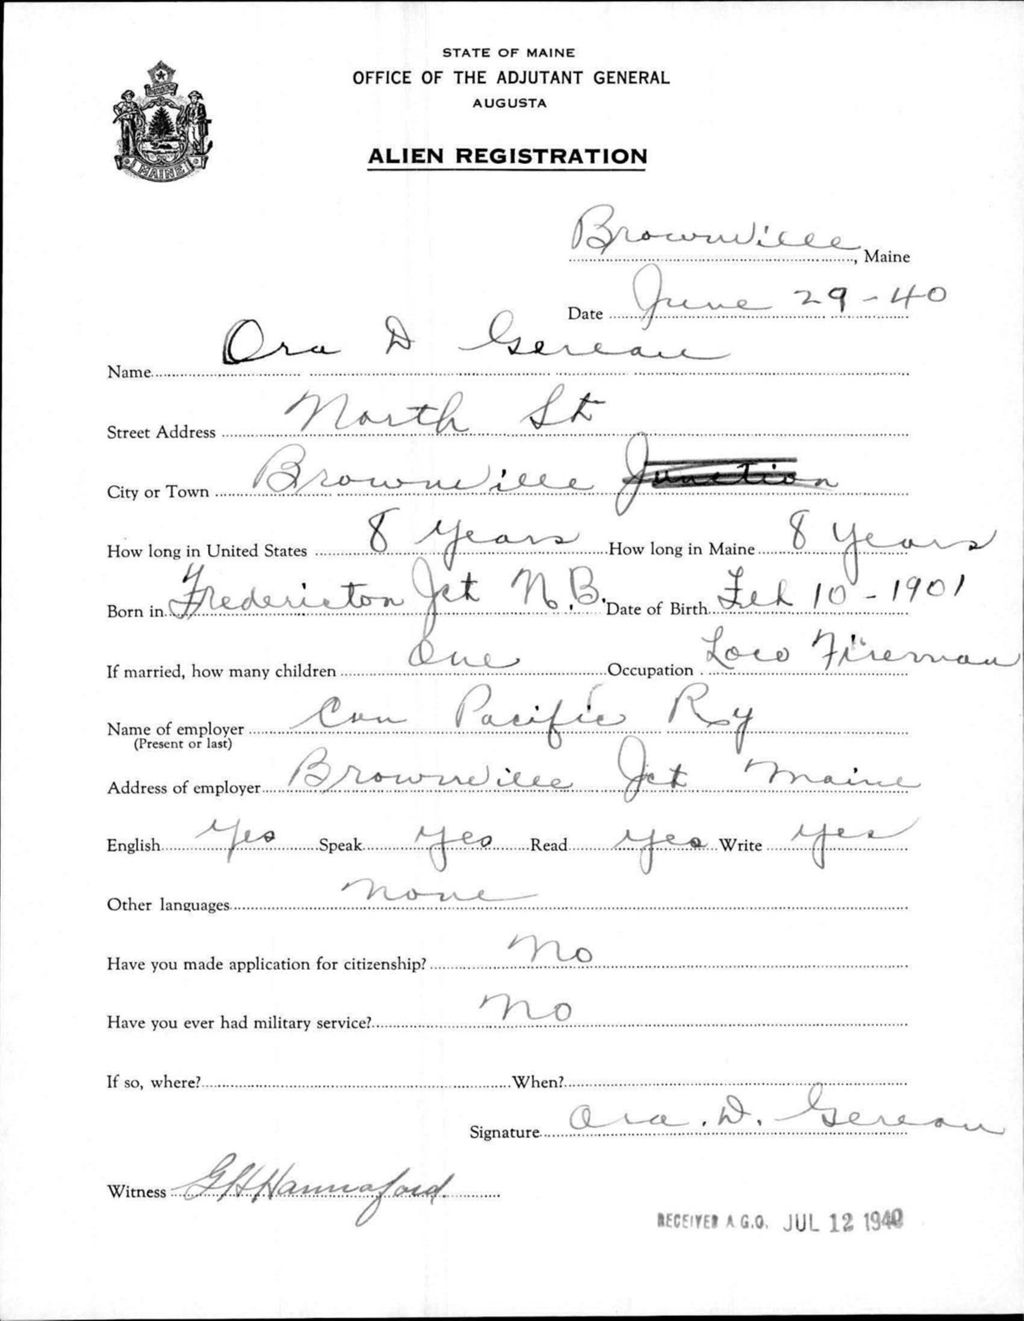 STATE OF MAINE
OFFICE OF THE ADJUTANT GENERAL
AUGUSTA
ALIEN REGISTRATION
MAINE
Brownville, Maine
Date June 29-40
Name Ora D Gereau
Street Address North St
City or Town Brownville Junction
How long in United States 8 years How long in Maine 8 years
Born in Fredericton Jct N.B. Date of Birth Feb 10-1901
If married, how many children One Occupation Loco Fireman
Name of employer Can Pacific Ry
(Present or last)
Address of employer Brownville Jct Maine
English Yes Speak yes Read yes Write yes
Other languages none
Have you made application for citizenship? No
Have you ever had military service? No
If so, where? When?
Signature Ora. D. Gereau
Witness G H Hannaford.
RECEIVED A.G.O. JUL 12 1940